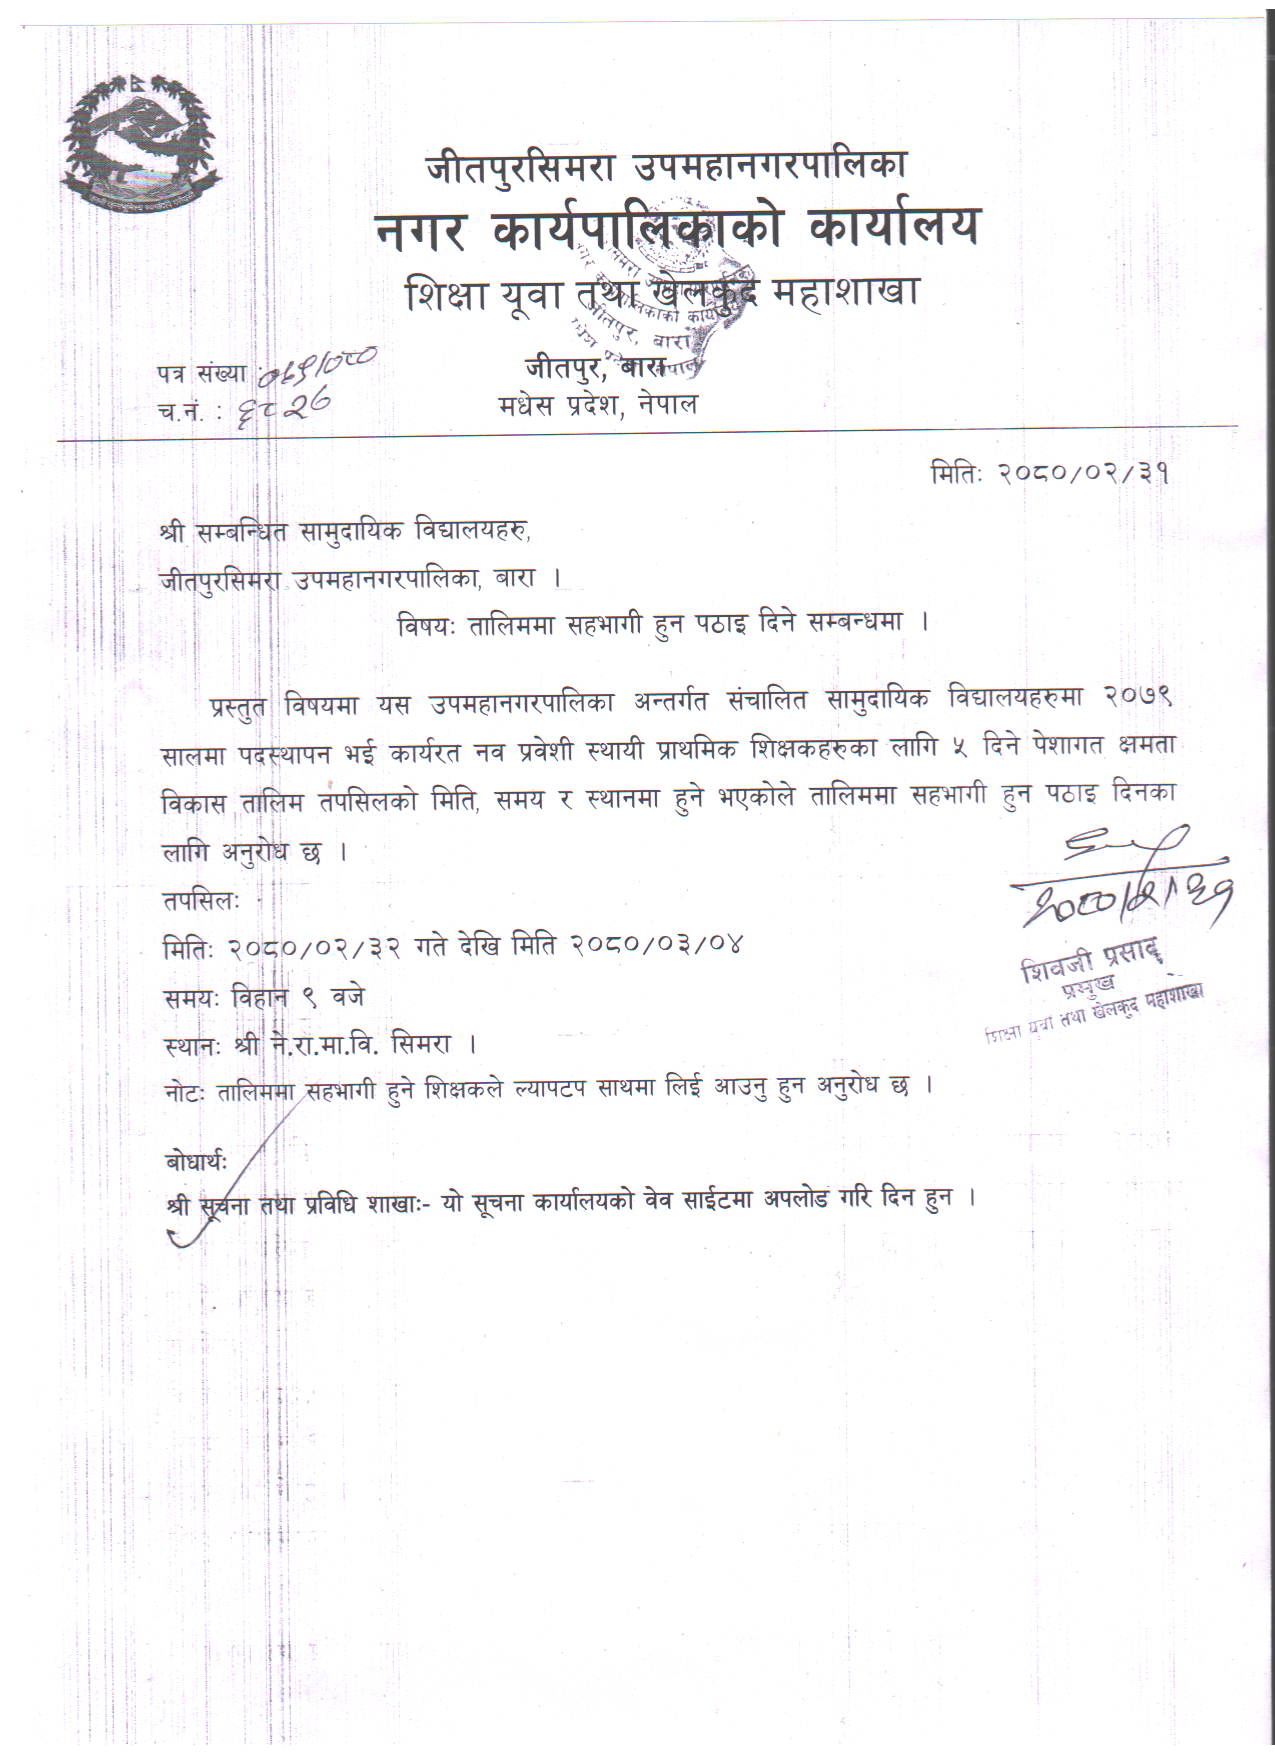 जीतपुरसिमरा उपमहानगरपालिका
नगर कार्यपालिकाको कार्यालय
शिक्षा यूवा तथा खेलकुद महाशाखा
जीतपुर, बारा
मधेस प्रदेश, नेपाल
पत्र संख्या : ०७९/०८०
च.नं. : ६८२७
मितिः २०८०/०२/३१
श्री सम्बन्धित सामुदायिक विद्यालयहरु,
जीतपुरसिमरा उपमहानगरपालिका, बारा ।
विषयः तालिममा सहभागी हुन पठाइ दिने सम्बन्धमा ।
प्रस्तुत विषयमा यस उपमहानगरपालिका अन्तर्गत संचालित सामुदायिक विद्यालयहरुमा २०७९
सालमा पदस्थापन भई कार्यरत नव प्रवेशी स्थायी प्राथमिक शिक्षकहरुका लागि ५ दिने पेशागत क्षमता
विकास तालिम तपसिलको मिति, समय र स्थानमा हुने भएकोले तालिममा सहभागी हुन पठाइ दिनका
लागि अनुरोध छ ।
तपसिलः
मितिः २०८०/०२/३२ गते देखि मिति २०८०/०३/०४
समयः विहान ९ वजे
स्थानः श्री ने.रा.मा.वि. सिमरा ।
नोटः तालिममा सहभागी हुने शिक्षकले ल्यापटप साथमा लिई आउनु हुन अनुरोध छ ।
२०८०/२/३१
शिवजी प्रसाद
प्रमुख
शिक्षा युवा तथा खेलकुद महाशाखा
बोधार्थः
श्री सूचना तथा प्रविधि शाखाः- यो सूचना कार्यालयको वेव साईटमा अपलोड गरि दिन हुन ।